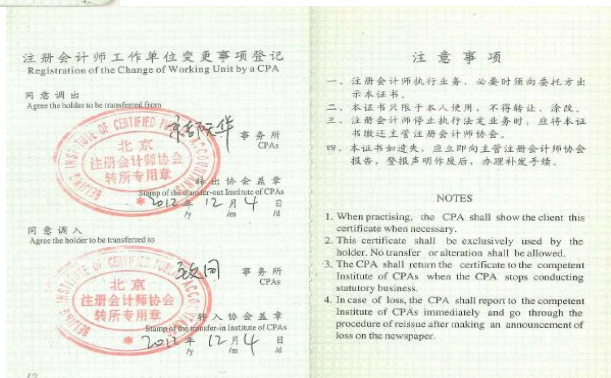 注册会计师工作单位变更事项登记
Registration of the Change of Working Unit by a CPA
同意调出
Agree the holder to be transferred from
事务所
CPAs
BEIJING INSTITUTE OF CERTIFIED PUBLIC ACCOUNTANTS
北京
注册会计师协会
转所专用章
转出协会盖章
Stamp of the transfer-out Institute of CPAs
2012年 12月 4日
/y /m /d
同意调入
Agree the holder to be transferred to
致同 事务所
CPAs
BEIJING INSTITUTE OF CERTIFIED PUBLIC ACCOUNTANTS
北京
注册会计师协会
转所专用章
转入协会盖章
Stamp of the transfer-in Institute of CPAs
2012年 12月 4日
/y /m /d
注意事项
一、注册会计师执行业务,必要时须向委托方出
示本证书。
二、本证书只限于本人使用,不得转让、涂改。
三、注册会计师停止执行法定业务时,应将本证
书缴还主管注册会计师协会。
四、本证书如遗失,应立即向主管注册会计师协会
报告,登报声明作废后,办理补发手续。
NOTES
1. When practising, the CPA shall show the client this
certificate when necessary.
2. This certificate shall be exclusively used by the
holder. No transfer or alteration shall be allowed.
3. The CPA shall return the certificate to the competent
Institute of CPAs when the CPA stops conducting
statutory business.
4. In case of loss, the CPA shall report to the competent
Institute of CPAs immediately and go through the
procedure of reissue after making an announcement of
loss on the newspaper.